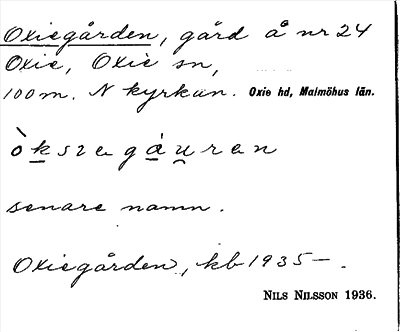 Oxiegården, gård å nr 24
Oxie, Oxie sn,
100 m. N kyrkan. Oxie hd, Malmöhus län.
senare namn.
Oxiegården, kb 1935 — .
NILS NILSSON 1936.